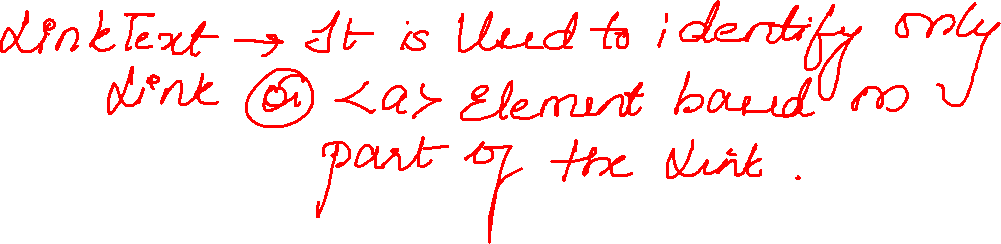 LinkText → It is Used to identify only
Link (or) <a> Element based on
part of the Link.